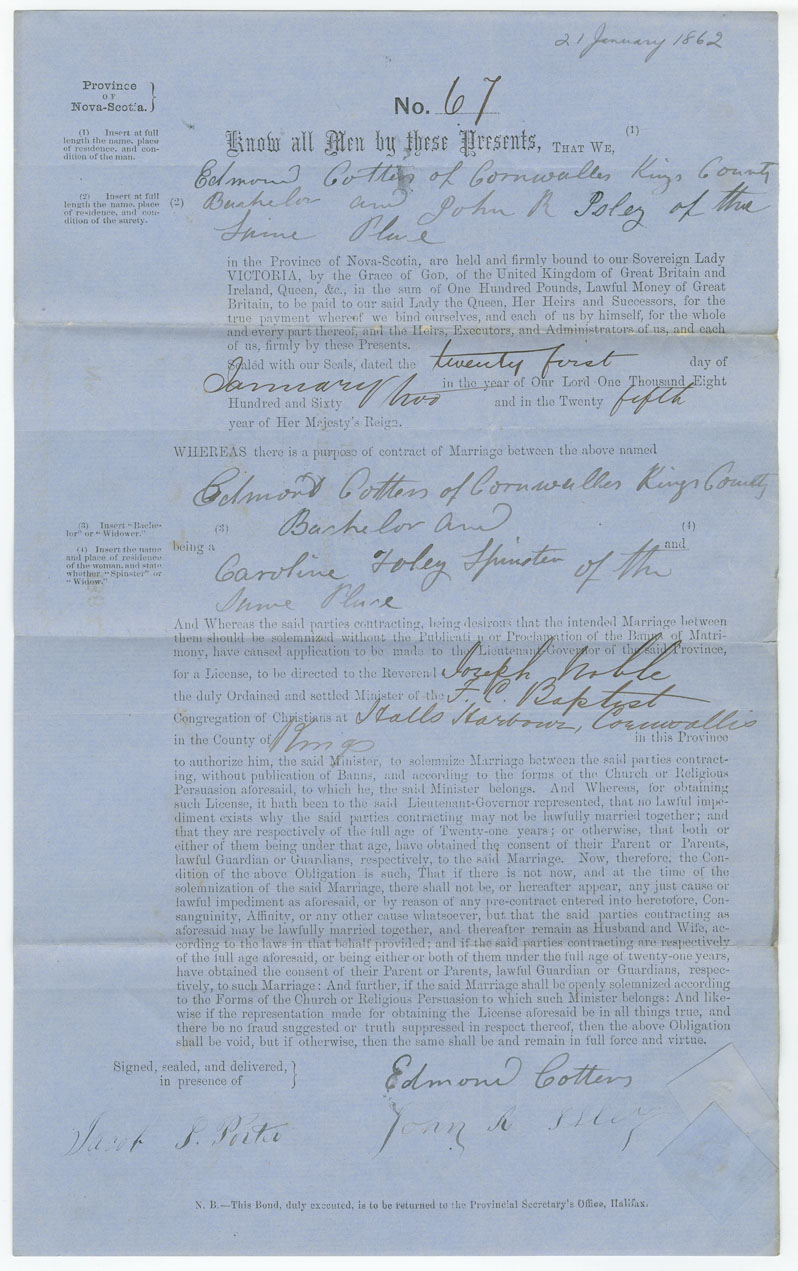 21 January 1862
Province
OF
Nova-Scotia.
No. 67
(1) Insert at full
length the name, place
of residence, and con-
dition of the man.
Know all Men by these Presents, THAT WE, (1)
Edmond Cotters of Cornwalles Kings County
(2) Insert at full
length the name, place
of residence, and con-
dition of the surety.
(2) Bachelor and John R Isley of the
Same Place
in the Province of Nova-Scotia, are held and firmly bound to our Sovereign Lady
VICTORIA, by the Grace of GOD, of the United Kingdom of Great Britain and
Ireland, Queen, &c., in the sum of One Hundred Pounds, Lawful Money of Great
Britain, to be paid to our said Lady the Queen, Her Heirs and Successors, for the
true payment whereof we bind ourselves, and each of us by himself, for the whole
and every part thereof, and the Heirs, Executors, and Administrators of us, and each
of us, firmly by these Presents.
Sealed with our Seals, dated the twenty first day of
January in the year of Our Lord One Thousand Eight
Hundred and Sixty two and in the Twenty fifth
year of Her Majesty's Reign.
WHEREAS there is a purpose of contract of Marriage between the above named
Edmond Cotters of Cornwalles Kings County
(3) Insert "Bache-
lor" or "Widower."
(4) Insert the name
and place of residence
of the woman, and state
whether "Spinster" or
"Widow."
(3) Bachelor and (4)
being a and
Caroline Foley Spinster of the
Same Place
And Whereas the said parties contracting, being desirous that the intended Marriage between
them should be solemnized without the Publication or Proclamation of the Banns of Matri-
mony, have caused application to be made to the Lieutenant-Governor of the said Province,
for a License, to be directed to the Reverend Joseph Noble
the duly Ordained and settled Minister of the F. C. Baptist
Congregation of Christians at Halls Harbour, Cornwallis
in the County of Kings in this Province
to authorize him, the said Minister, to solemnize Marriage between the said parties contract-
ing, without publication of Banns, and according to the forms of the Church or Religious
Persuasion aforesaid, to which he, the said Minister belongs. And Whereas, for obtaining
such License, it hath been to the said Lieutenant-Governor represented, that no lawful impe-
diment exists why the said parties contracting may not be lawfully married together; and
that they are respectively of the full age of Twenty-one years; or otherwise, that both or
either of them being under that age, have obtained the consent of their Parent or Parents,
lawful Guardian or Guardians, respectively, to the said Marriage. Now, therefore, the Con-
dition of the above Obligation is such, That if there is not now, and at the time of the
solemnization of the said Marriage, there shall not be, or hereafter appear, any just cause or
lawful impediment as aforesaid, or by reason of any pre-contract entered into heretofore, Con-
sanguinity, Affinity, or any other cause whatsoever, but that the said parties contracting as
aforesaid may be lawfully married together, and thereafter remain as Husband and Wife, ac-
cording to the laws in that behalf provided; and if the said parties contracting are respectively
of the full age aforesaid, or being either or both of them under the full age of twenty-one years,
have obtained the consent of their Parent or Parents, lawful Guardian or Guardians, respec-
tively, to such Marriage: And further, if the said Marriage shall be openly solemnized according
to the Forms of the Church or Religious Persuasion to which such Minister belongs: And like-
wise if the representation made for obtaining the License aforesaid be in all things true, and
there be no fraud suggested or truth suppressed in respect thereof, then the above Obligation
shall be void, but if otherwise, then the same shall be and remain in full force and virtue.
Signed, sealed, and delivered,
in presence of
Edmond Cotters
Jacob S. Porter
John R
N. B.—This Bond, duly executed, is to be returned to the Provincial Secretary's Office, Halifax.